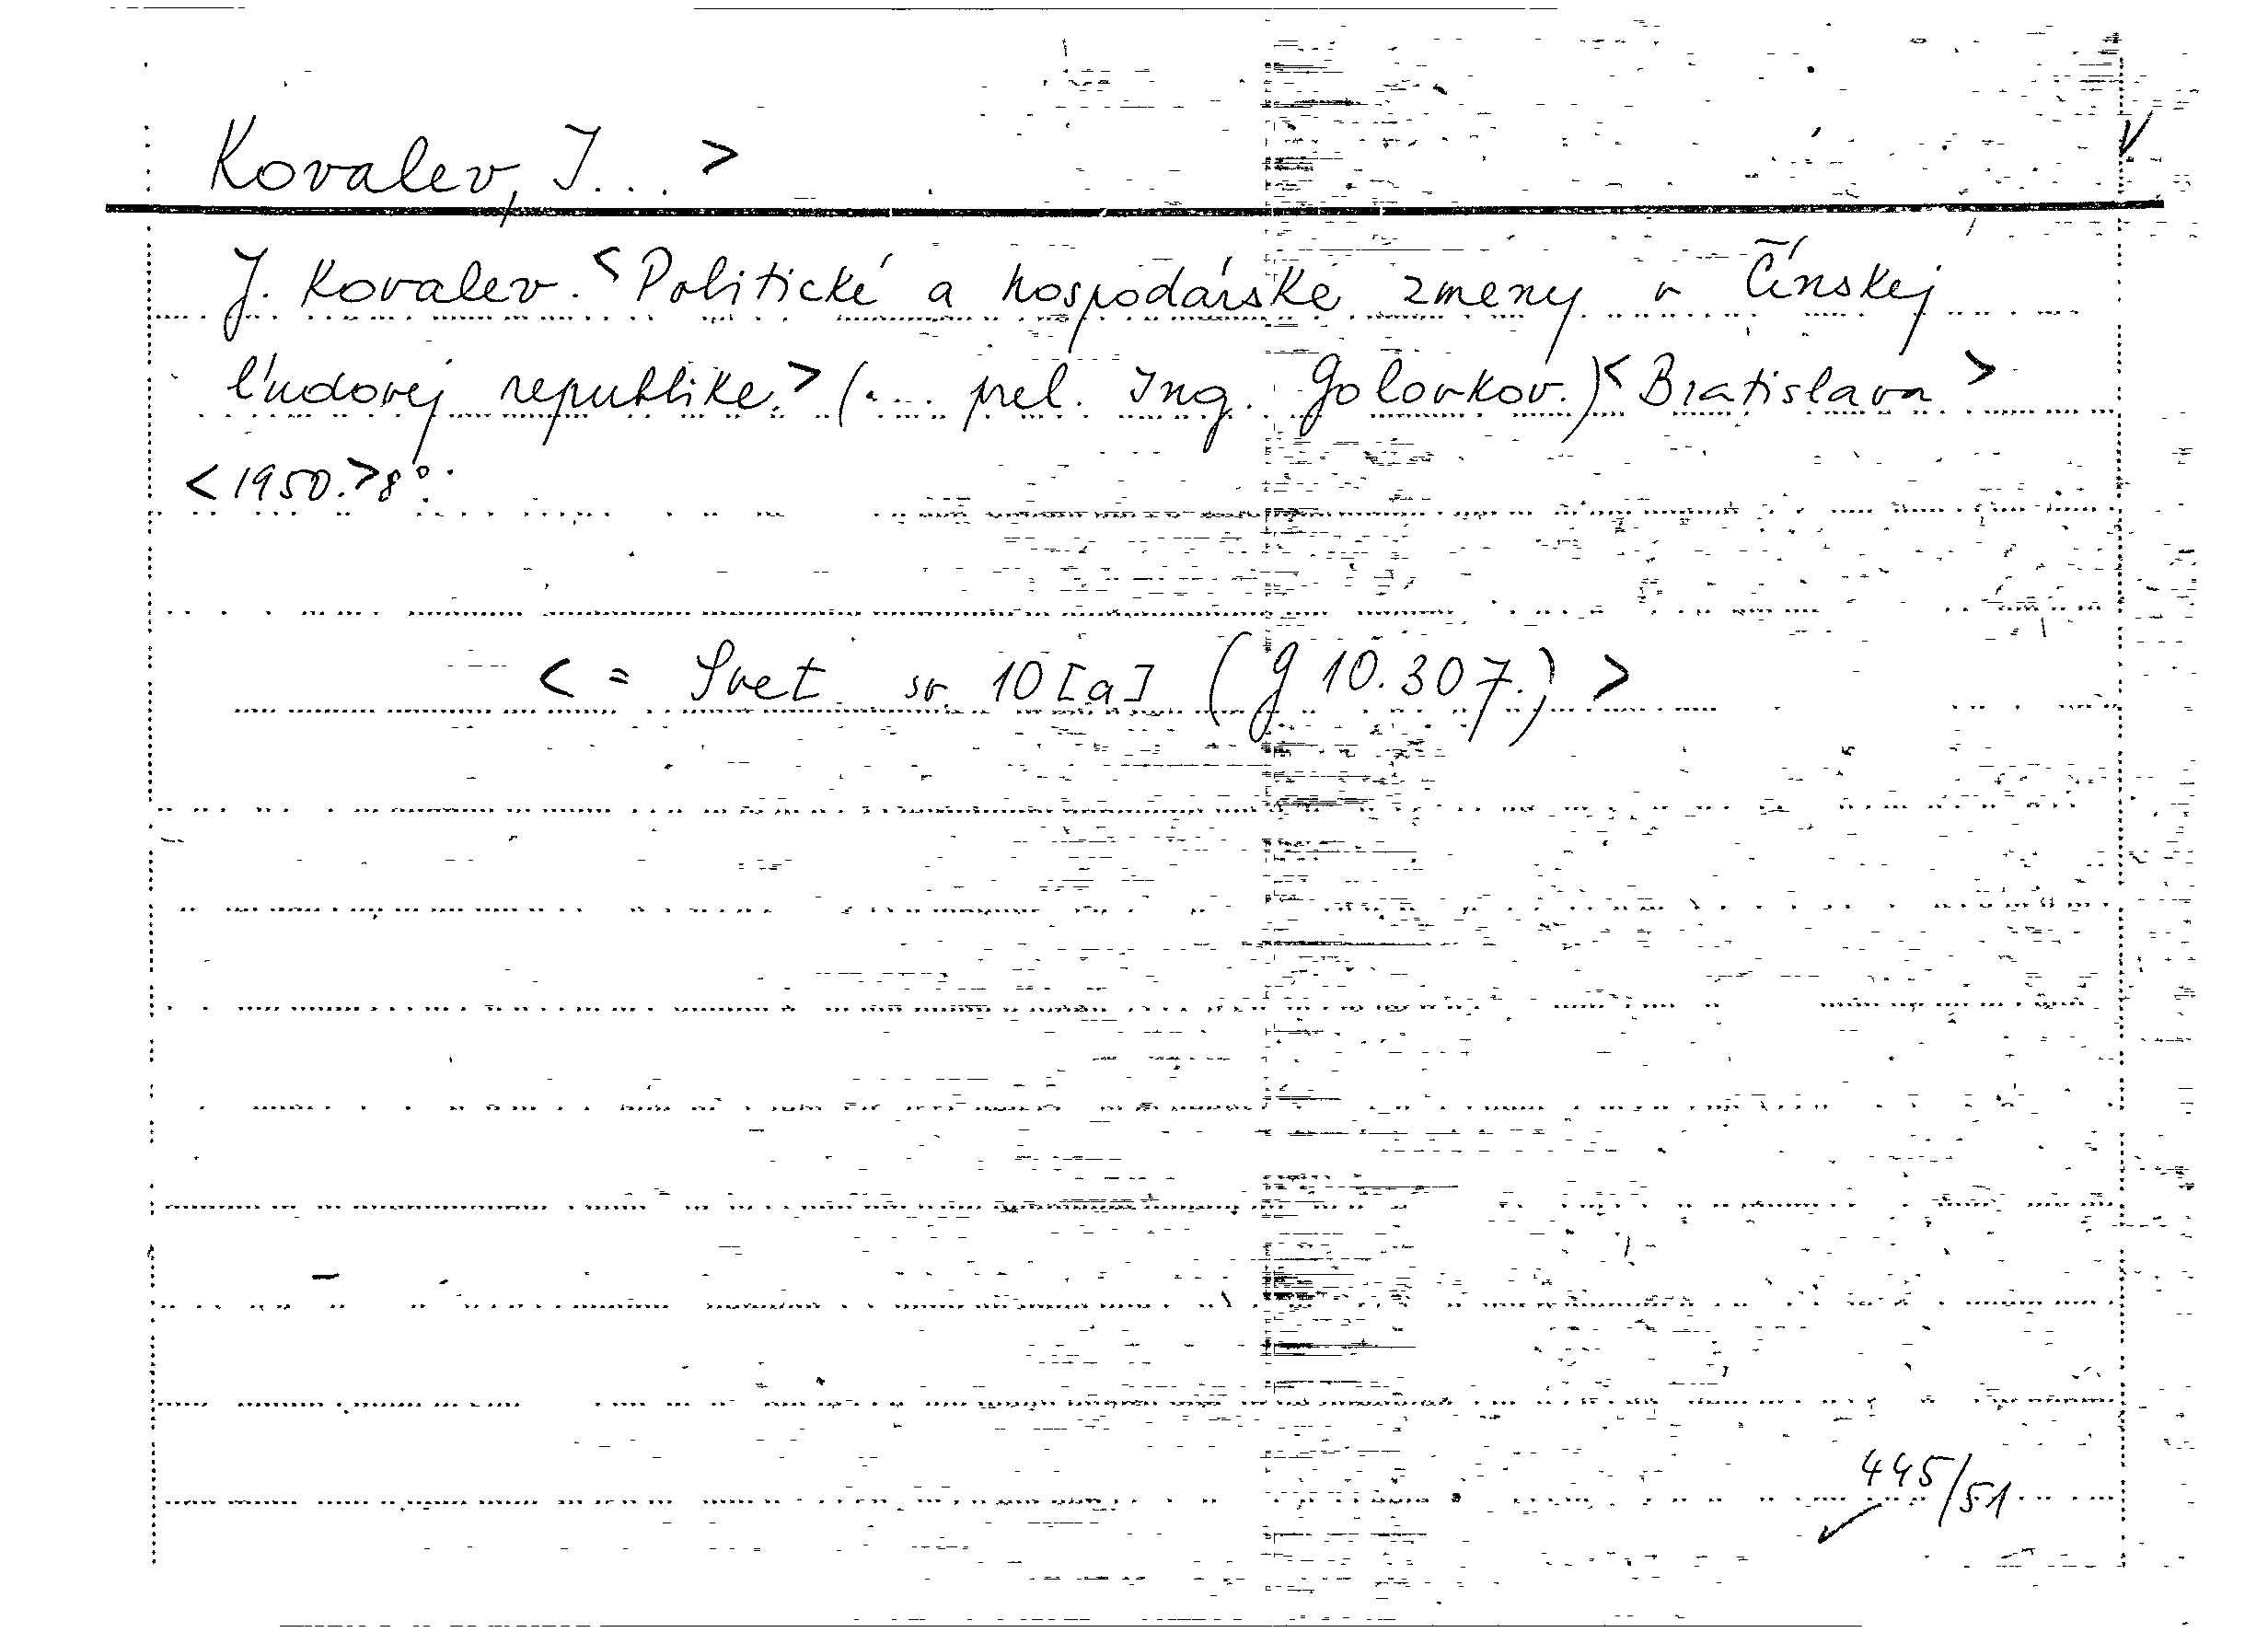 Kovalev, I... >
J. Kovalev. <Politické a hospodárske zmeny v Čínskej
ľudovej republike.> (... prel. Ing. Golovkov.) <Bratislava>
<1950.> 8°.
< = Svet sv. 10 [a] (g 10.307.) >
445/51